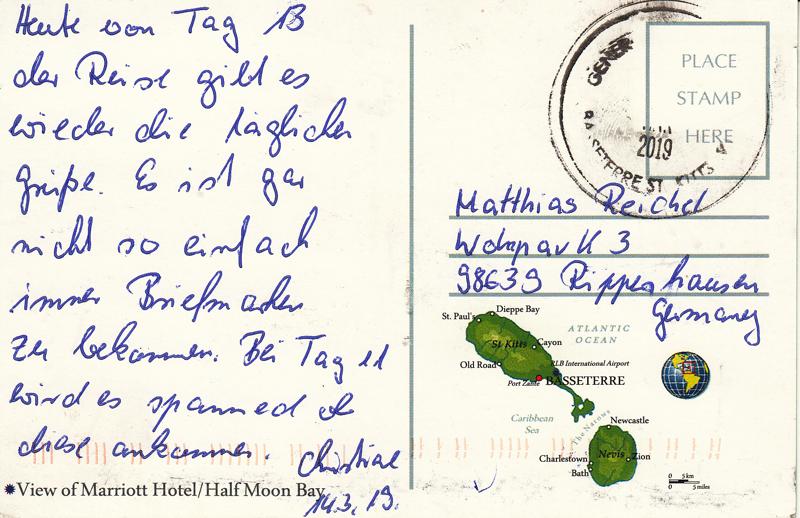 Heute von Tag 13
der Reise gibt es
wieder die täglichen
Grüße. Es ist gar
nicht so einfach
immer Briefmarken
zu bekommen. Bei Tag 11
wird es spannend ob
diese ankommen. Christine
14.3.19.
View of Marriott Hotel/Half Moon Bay
PLACE
STAMP
HERE
GENER
2019
BASSETERRE ST. KITTS
Matthias Reichel
Wohnpark 3
98639 Rippershausen
Germany
St. Paul's
Dieppe Bay
St Kitts
Cayon
Old Road
RLB International Airport
Port Zante
BASSETERRE
ATLANTIC
OCEAN
Caribbean
Sea
The Narrows
Newcastle
Nevis
Charlestown
Zion
Bath
5 km
5 miles